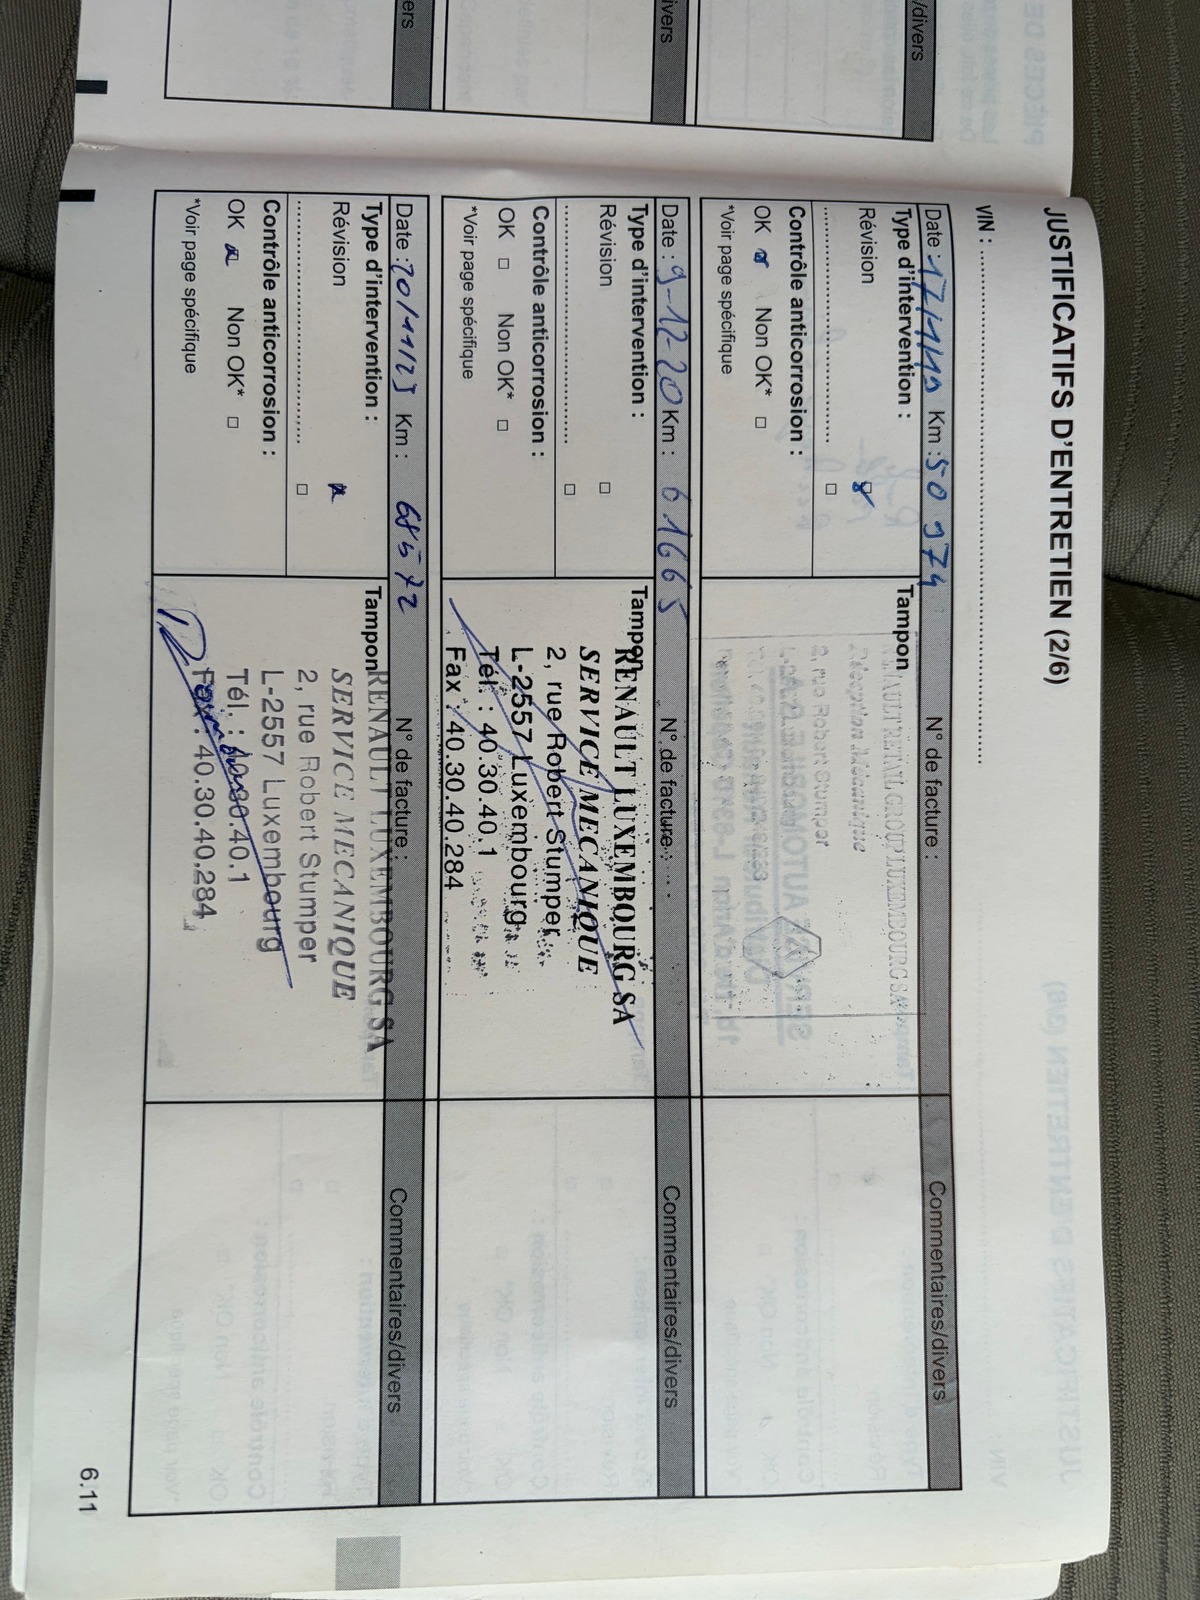 JUSTIFICATIFS D'ENTRETIEN (2/6)
VIN : ................................................................
Date : 17/11/19 Km : 50 974 N° de facture : Commentaires/divers
Type d'intervention : Tampon
Révision
RENAULT RETAIL GROUP LUXEMBOURG SA
Réception Mécanique
2, rue Robert Stumper
Contrôle anticorrosion :
OK Non OK* □
*Voir page spécifique
Date : 9-12-20 Km : 61665 N° de facture : Commentaires/divers
Type d'intervention : Tampon
Révision □
□
Contrôle anticorrosion :
OK □ Non OK* □
*Voir page spécifique
RENAULT LUXEMBOURG SA
SERVICE MECANIQUE
2, rue Robert Stumper
L-2557 Luxembourg
Tél. : 40.30.40.1
Fax : 40.30.40.284
Date : Km : 68572 N° de facture : Commentaires/divers
Type d'intervention : Tampon
Révision
□
Contrôle anticorrosion :
OK Non OK* □
*Voir page spécifique
RENAULT LUXEMBOURG SA
SERVICE MECANIQUE
2, rue Robert Stumper
L-2557 Luxembourg
Tél. : 40.30.40.1
Fax : 40.30.40.284
6.11